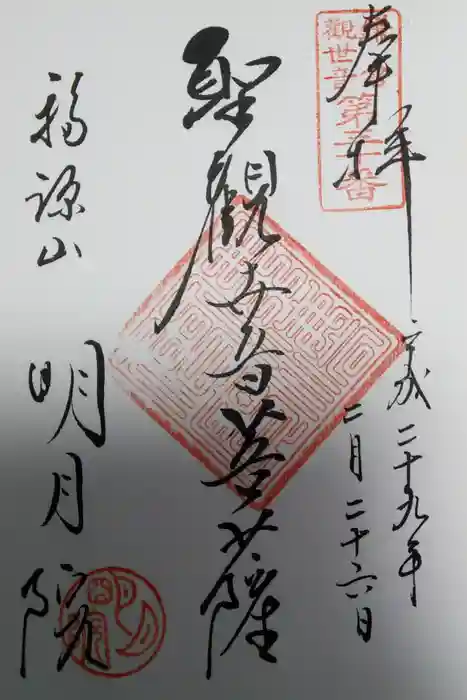 奉拝
平成二十九年
二月二十六日
觀世音第三十番
聖觀世音菩薩
福源山
明月院